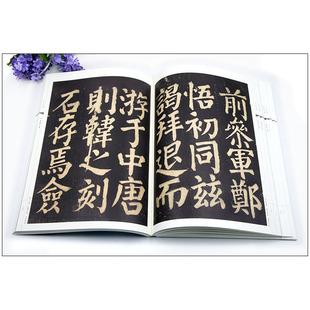 前叅軍鄭
悟初同兹
謁拜退而
游于中唐
則韓之刻
石存焉僉